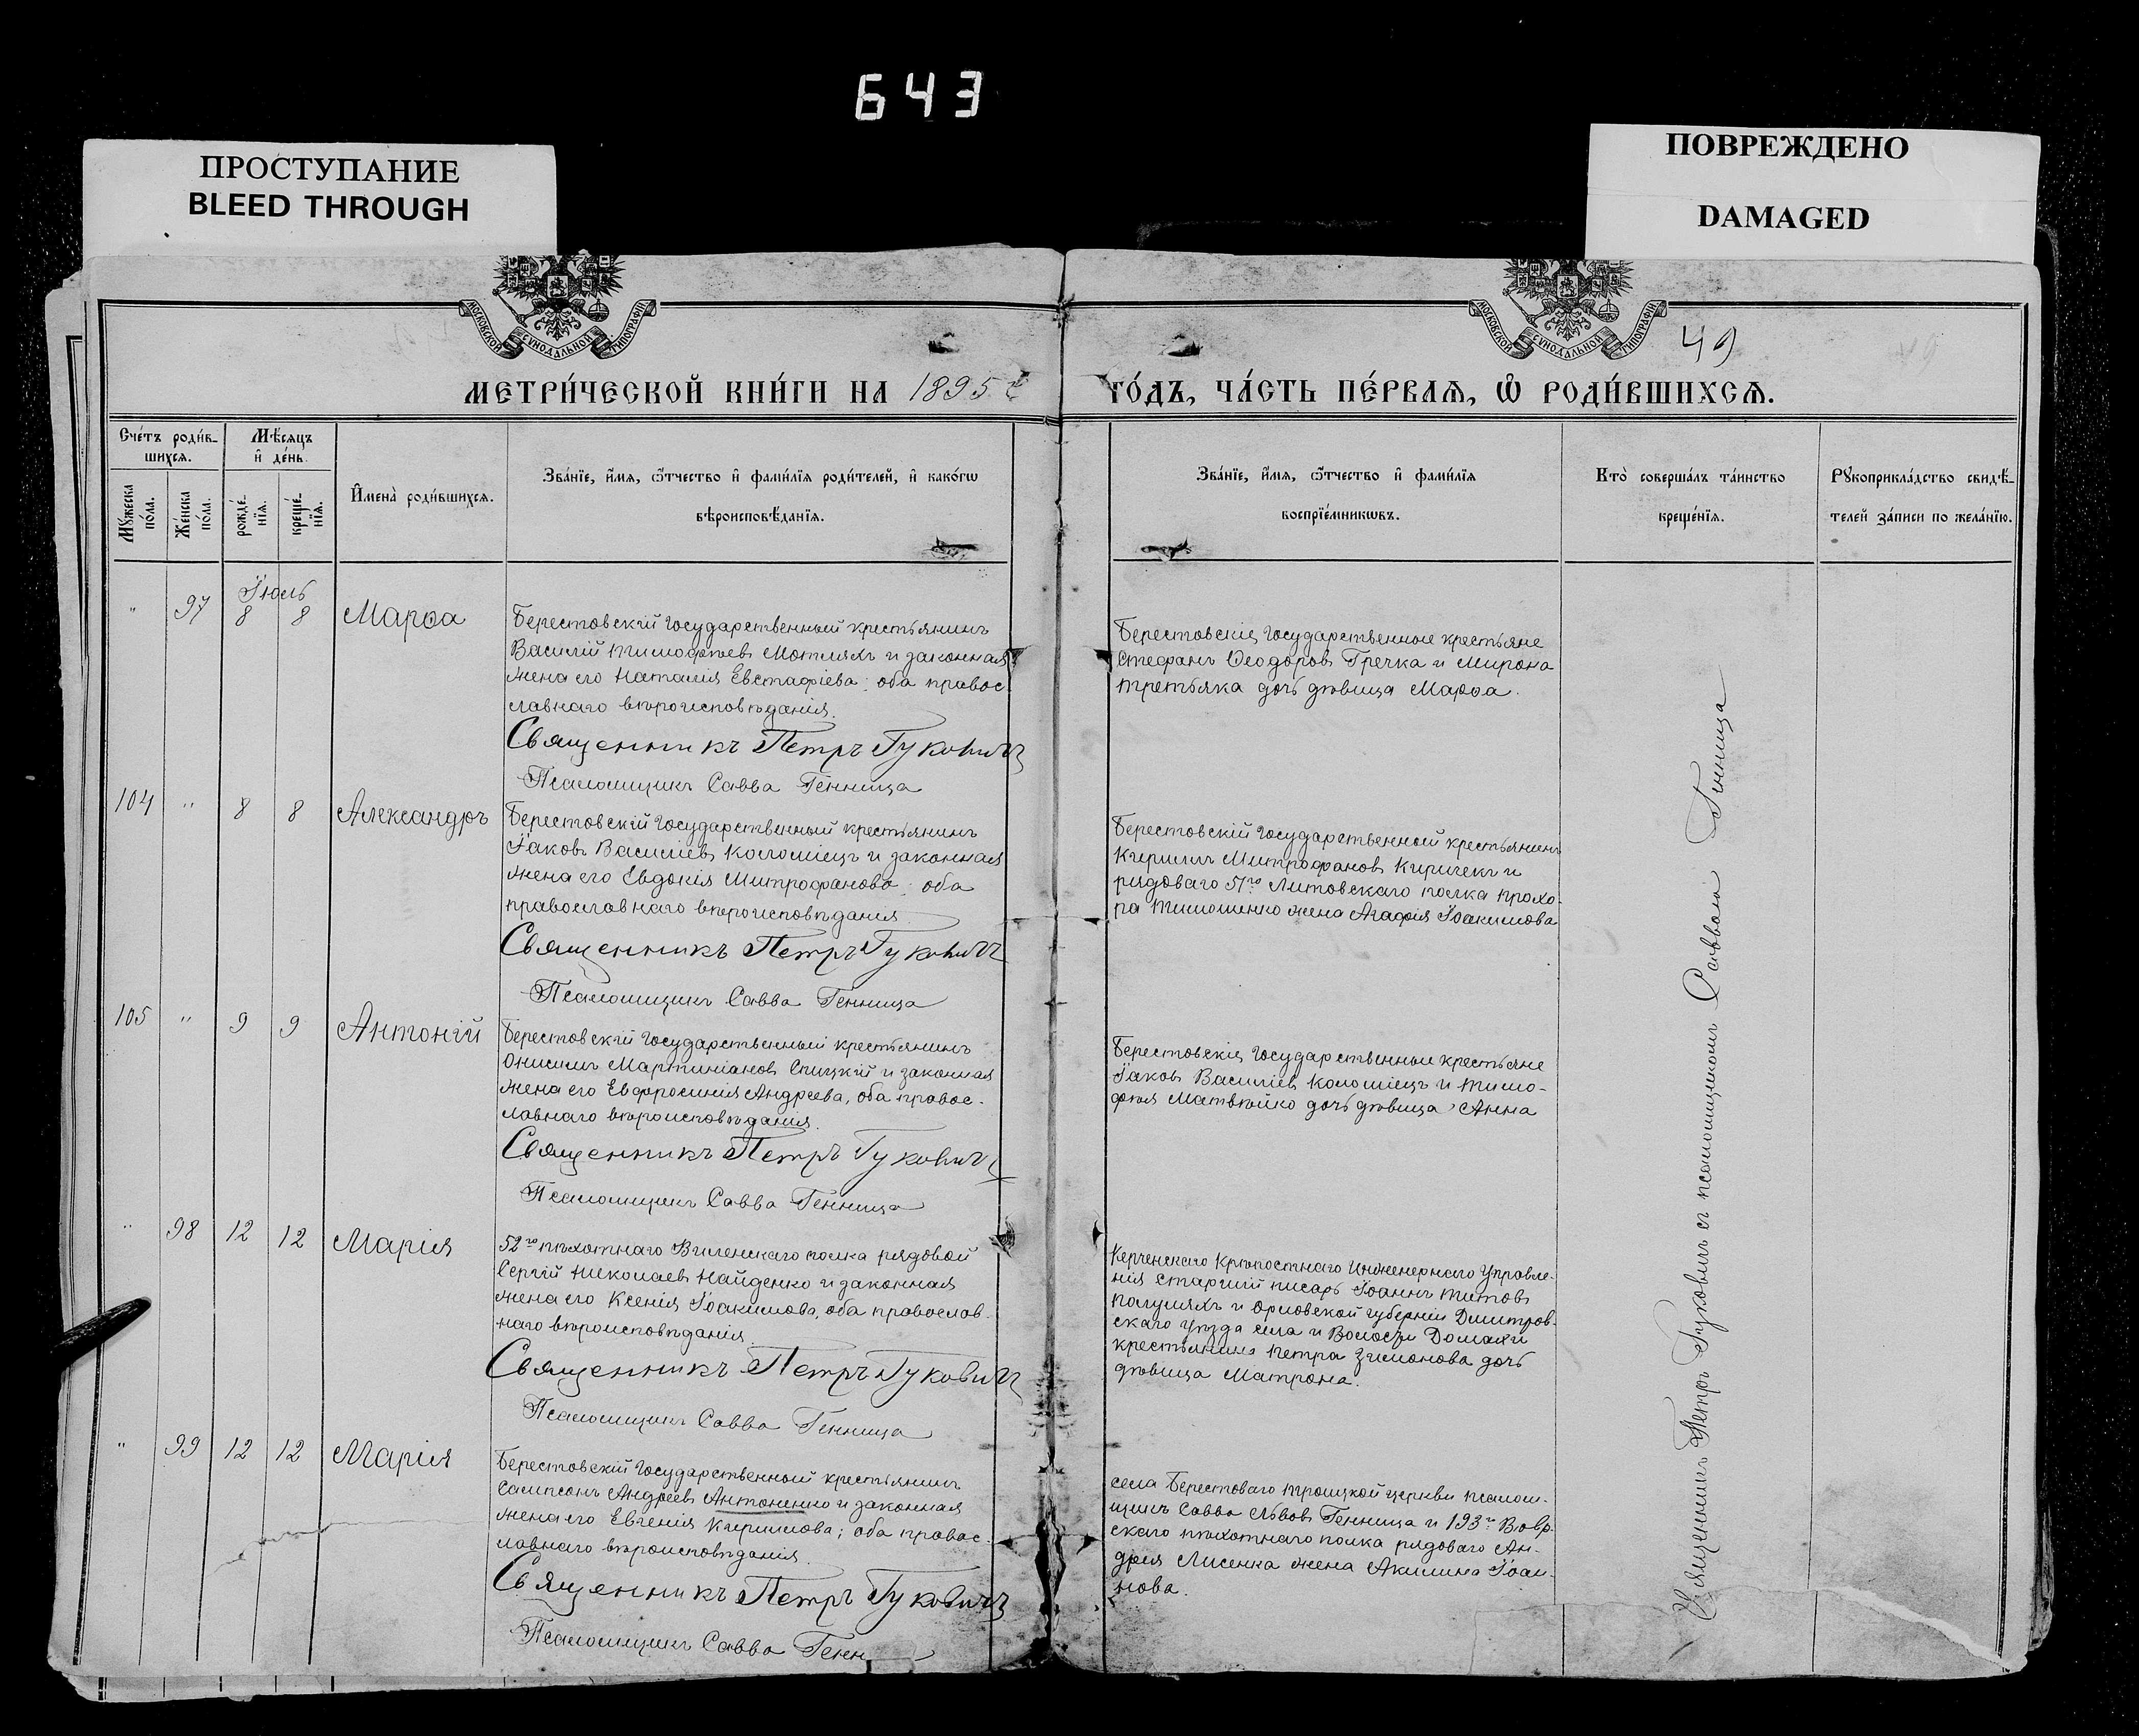 643
ПРОСТУПАНИЕ
BLEED THROUGH
ПОВРЕЖДЕНО
DAMAGED
МОСКОВСКОЙ СѴНОДАЛЬНОЙ ТИПОГРАФІИ
МОСКОВСКОЙ СѴНОДАЛЬНОЙ ТИПОГРАФІИ
49
МЕТРИ́ЧЕСКОЙ КНИ́ГИ НА 1895 г
ГО́ДЪ, ЧА́СТЬ ПЕ́РВАѦ, Ѽ РОДИ́ВШИХСѦ.
Сче́тъ роди́в-
шихсѧ.
Мꙋ́жеска
по́ла.
Же́нска
по́ла.
Мѣ́сѧцъ
и҆ де́нь.
рожде́-
нїѧ.
креще́-
нїѧ.
И҆мена̀ роди́вшихсѧ.
Зва́нїе, и҆́мѧ, ѻ҆́тчество и҆ фами́лїѧ роди́телей, и҆ како́гѡ
вѣроисповѣ́данїѧ.
Зва́нїе, и҆́мѧ, ѻ҆́тчество и҆ фами́лїѧ
воспрїе́мникѡвъ.
Кто̀ соверша́лъ та́инство
креще́нїѧ.
Рꙋкоприкла́дство свидѣ́-
телей за́писи по жела́нїю.
Іюль
" 97 8 8 Марѳа
Берестовскій Государственный крестьянинъ
Василій Тимофѣев Мотляхъ и законная
жена его Наталія Евстафіева; оба правос-
лавнаго вѣроисповѣданія.
Священникъ Петръ Гуковичъ
Псаломщикъ Савва Генница
Берестовскіе Государственные крестьяне
Стефанъ Ѳеодоровъ Гречка и Мирона
Третьяка дочь дѣвица Марѳа.
104 " 8 8 Александръ
Берестовскій Государственный крестьянинъ
Іаковъ Василіевъ Коломіецъ и законная
жена его Евдокія Митрофанова; оба
православнаго вѣроисповѣданія.
Священникъ Петръ Гуковичъ
Псаломщикъ Савва Генница
Берестовскій Государственный крестьянинъ
Кириллъ Митрофановъ Киричекъ и
рядоваго 51го Литовскаго полка Прохо-
ра Тимошенко жена Агафія Іоакимова
105 " 9 9 Антоній
Берестовскій Государственный крестьянинъ
Онисимъ Мартиніановъ Спицкій и законная
жена его Евфросинія Андреева, оба правос-
лавнаго вѣроисповѣданія.
Священникъ Петръ Гуковичъ
Псаломщикъ Савва Генница
Берестовскіе Государственные крестьяне
Іаковъ Василіевъ Коломіецъ и Тимо-
фея Матвѣйко дочь дѣвица Анна
" 98 12 12 Марія
52го пѣхотнаго Виленскаго полка рядовой
Сергій Николаевъ Найденко и законная
жена его Ксенія Іоакимова, оба православ-
наго вѣроисповѣданія.
Священникъ Петръ Гуковичъ
Псаломщикъ Савва Генница
Керченскаго Крѣпостнаго Инженернаго Управле-
нія старшій писарь Іоаннъ Титовъ
и Орловской губерніи Димитров-
скаго уѣзда села и Волости Домахи
крестьянина Петра Зимонова дочь
дѣвица Матрона.
" 99 12 12 Марія
Берестовскій Государственный крестьянинъ
Сампсонъ Андреевъ Антоненко и законная
жена его Евгенія Кириллова; оба правос-
лавнаго вѣроисповѣданія.
Священникъ Петръ Гуковичъ
Псаломщикъ Савва Генн
села Берестоваго Троицкой церкви псалом-
щикъ Савва Львовъ Генница и 193го
скаго пѣхотнаго полка рядоваго Ан-
дрея Лисенка жена Акилина Іоан-
нова.
Священникъ Петръ Гуковичъ съ псаломщикомъ Саввою Генница